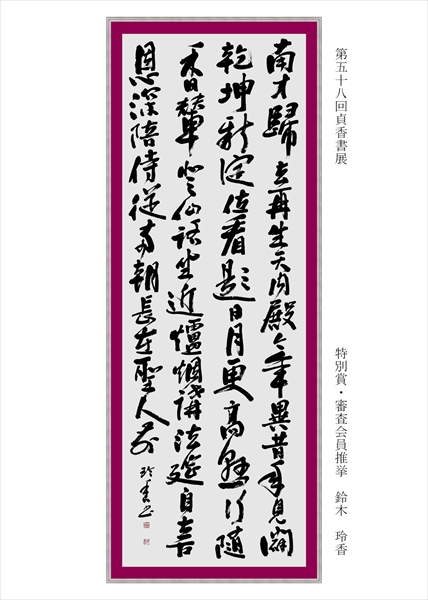 第五十八回貞香書展
特別賞・審査会員推挙　鈴木　玲香
南方歸去再生天内殿今年異昔年見闢
乾坤新定位看題日月更高懸行隨
香輦登仙路坐近爐煙講法筵自喜
恩深陪侍從兩朝長在聖人前
玲香書